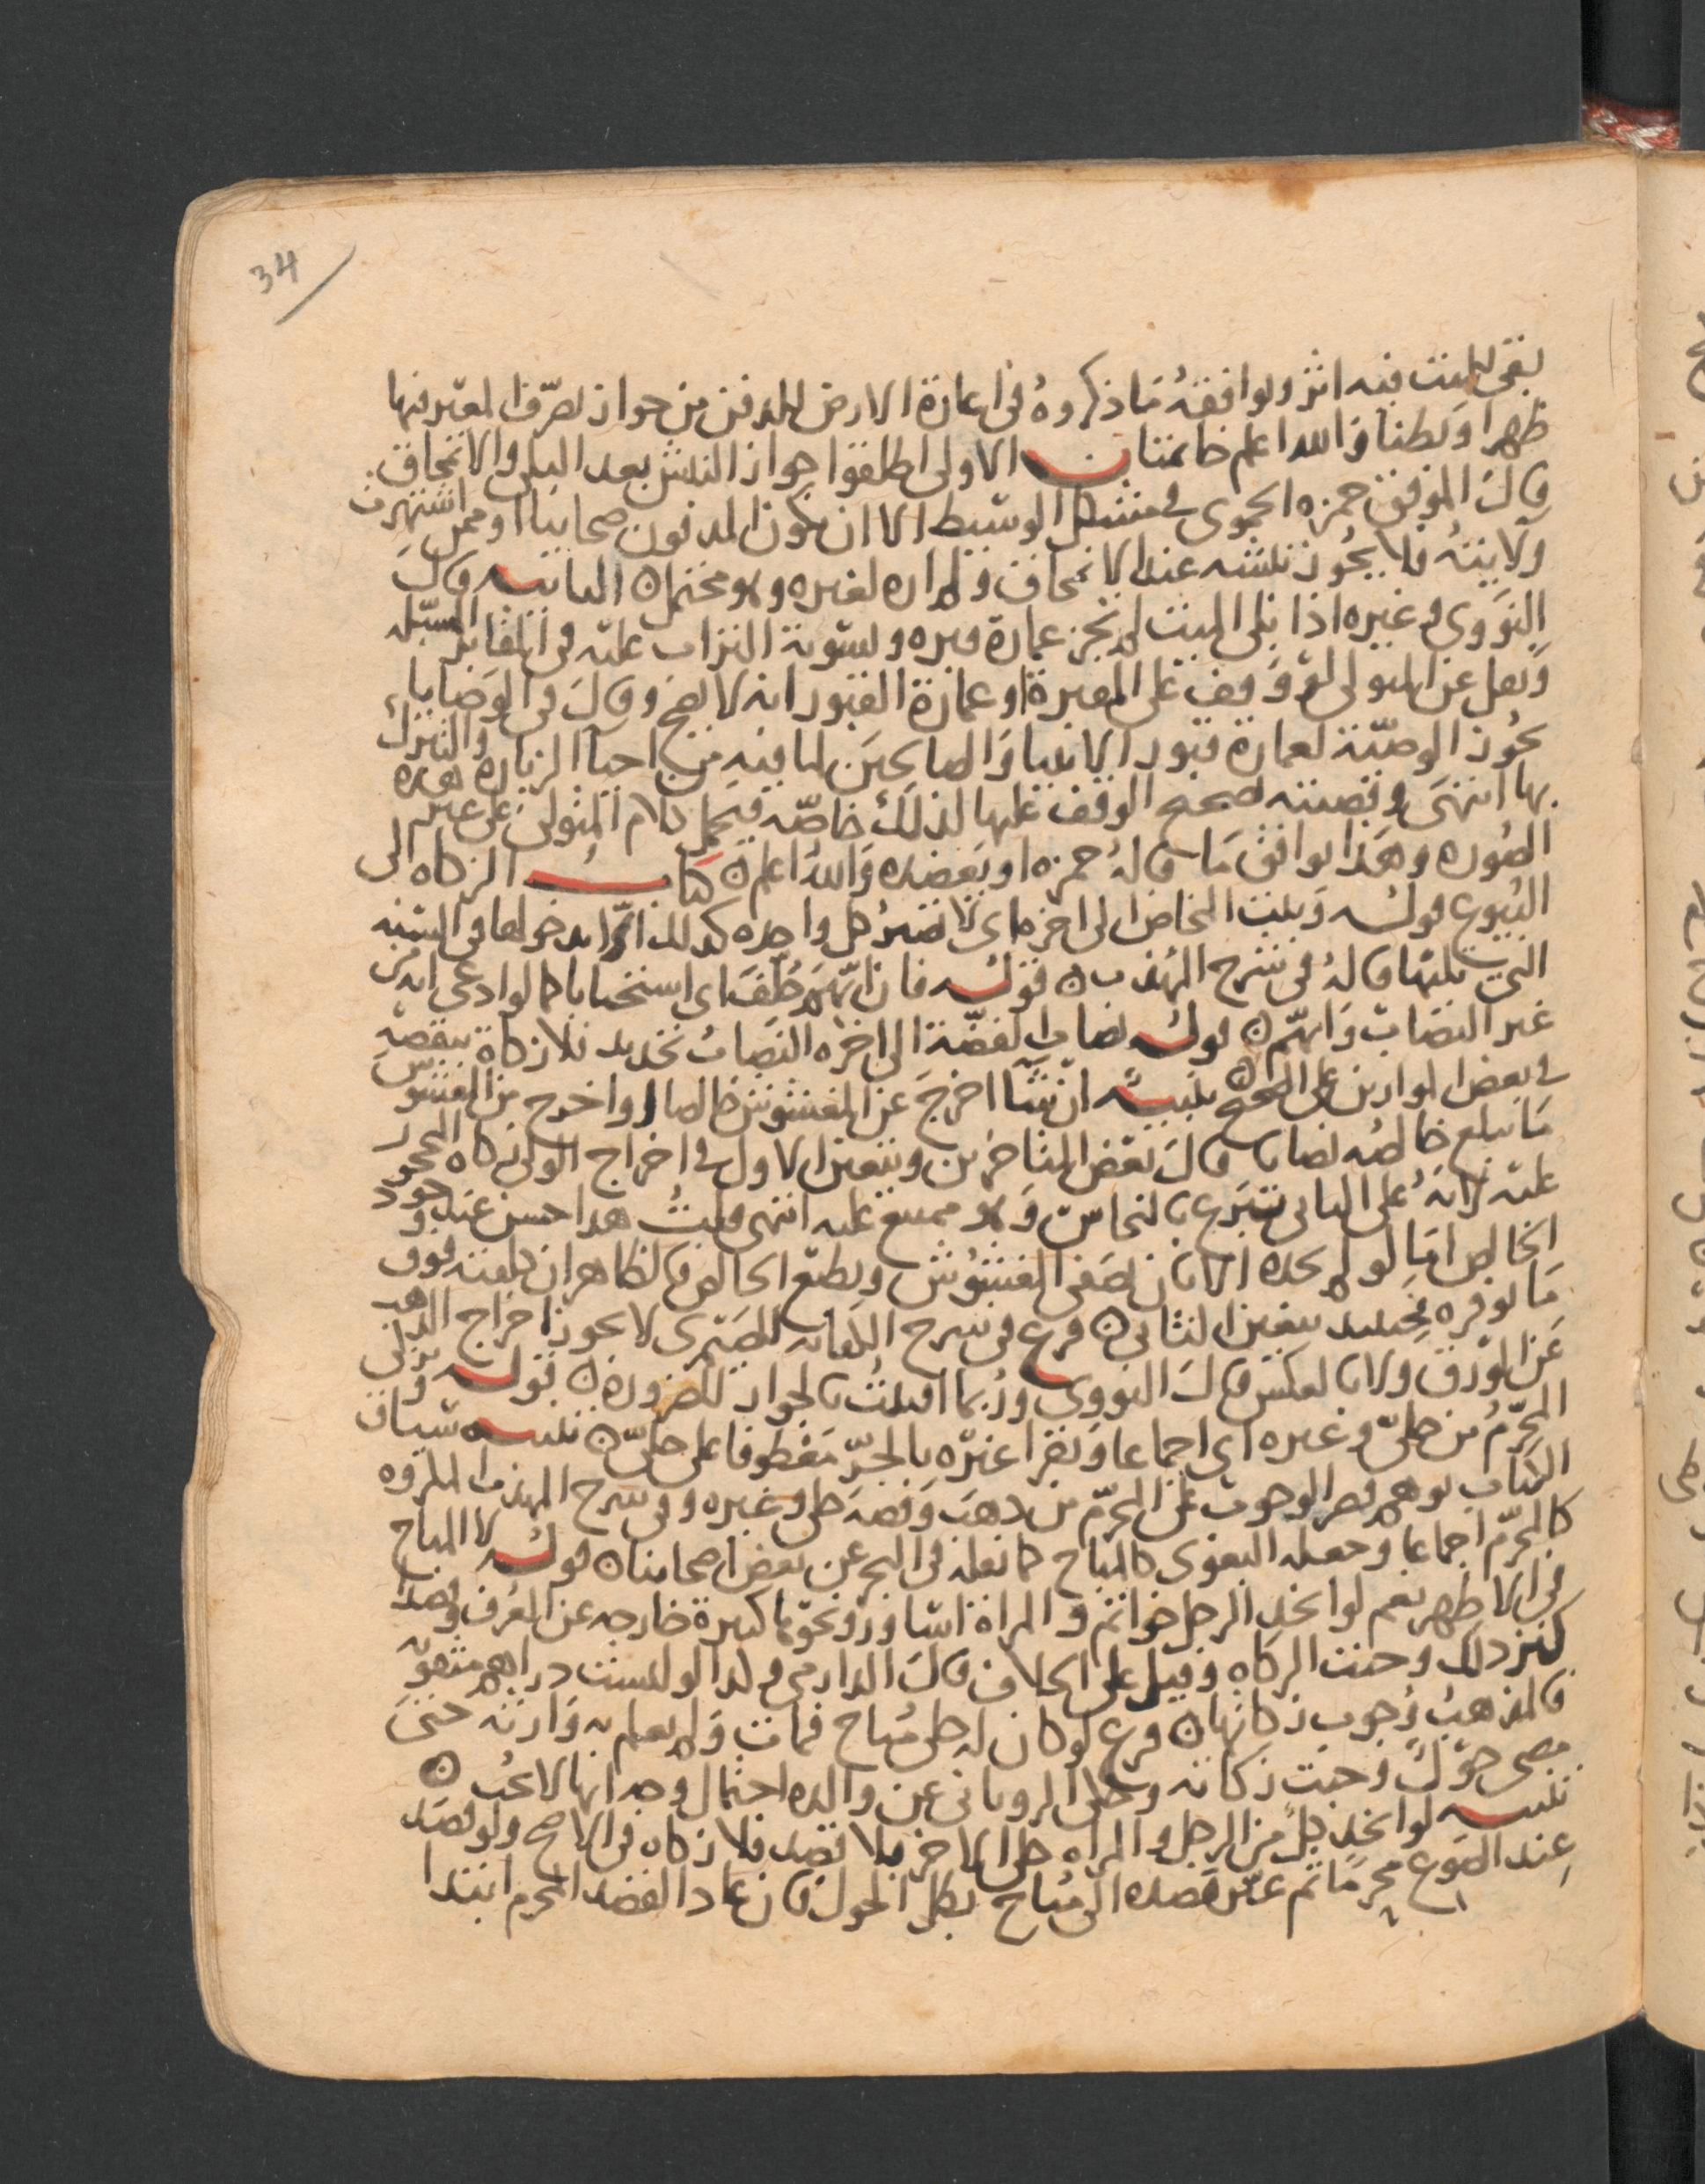 34
بقي للميت فيه اثر ويوافقه ما ذكروه في اعارة الارض للدفن من جواز تصرف المعير فيها
ظهرا وبطنا والله اعلم خاتمتان الاولى اطلقوا جواز النبش بعد البلى والانمحاق
قال الموفق حمزه الحموي في مشكل الوسيط الا ان يكون المدفون صحابيا او ممن اشتهرت
ولايته فلا يجوز نبشه عند الانمحاق ولم اره لغيره وهو محتمل الثانيه قال
النووي وغيره اذا بلي الميت لم تجز عمارة قبره وتسوية التراب عليه في المقابر المسبله
ونقل عن المتولي لو وقف على المقبرة او عمارة القبور انه لا يصح وقال في الوصايا
يجوز الوصية لعمارة قبور الانبيا والصالحين لما فيه من احيا الزيارة والتبرك
بها انتهى وقضيته صحة الوقف عليها لذلك خاصة فيحمل كلام المتولي على غير هذه
الصوره وهذا يوافق ما قاله حمزه او يعضده والله اعلم كتاب الزكاه الى
البيوع قوله وبنت المخاض الى اخره اي لا تصير كل واحده كذلك الا بدخولها في السنه
التي تليها قاله في شرح المهذب قوله فان اتهم حلف اي استحبابا كما لو ادعى انه من
غير النصاب واتهم قوله نصاب الفضة الى اخره النصاب تحديد فلا زكاة بنقصه
في بعض الموازين على الصحيح تنبيه ان شا اخرج عن المغشوش خالصا او اخرج من المغشوش
ما يبلغ خالصه نصابا قال بعض المتاخرين ويتعين الاول في اخراج الولي زكاه المحجور
عليه لانه على الثاني تبرع بالنحاس وهو ممتنع عليه انتهى قلت هذا حسن عند وجود
الخالص اما لو لم يجده الا بان يصفي المغشوش ويطبع الخالص فالظاهر ان كلفته فوق
ما يوفره فحينئذ يتعين الثاني فرع في شرح الكفايه للصيمري لا يجوز اخراج الذهب
عن الورق ولا بالعكس قال النووي وربما افتيت بالجواز للضرورة قوله ويزكى
المحرم من حلي وغيره اي اجماعا ويقرا غيره بالجر معطوفا على حلي تنبيه سياق
الكتاب يوهم قصر الوجوب على المحرم من ذهب وفضة حلي وغيره وفي شرح المهذب المكروه
كالمحرم اجماعا وجعله البغوي كالمباح كما نقله في البحر عن بعض اصحابنا قوله لا المباح
في الاظهر نعم لو اتخذ الرجل خواتم والمراة اساور ونحوها كبيرة خارجه عن العرف فهذا
كنز ذلك وجبت الزكاه وقيل على الخلاف قال الدارمي وكذا لو لبست دراهم مثقوبه
فالمذهب وجوب زكاتها فرع لو كان له حلي مباح فمات ولم يعلم به وارثه حتى
مضى حول وجبت زكاته وحكى الروياني عن والده احتمال وجه انها لا تجب
تنبيه لو اتخذ كل من الرجل والمراه حلي الاخر بلا قصد فلا زكاه في الاصح ولو قصد
عند الصوغ محرما ثم غير قصده الى مباح بطل الحول فان عاد القصد المحرم ابتدا